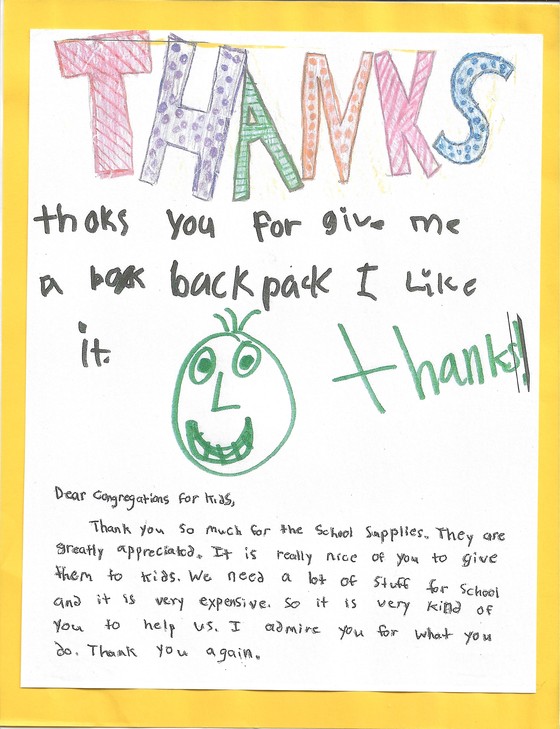 THANKS
thoks you for give me
a back backpack I Like
it.
thanks!!
Dear Congregations for Kids,
Thank you so much for the School Supplies. They are
greatly appreciated. It is really nice of you to give
them to kids. We need a lot of stuff for school
and it is very expensive. So it is very kind of
you to help us. I admire you for what you
do. Thank you again.